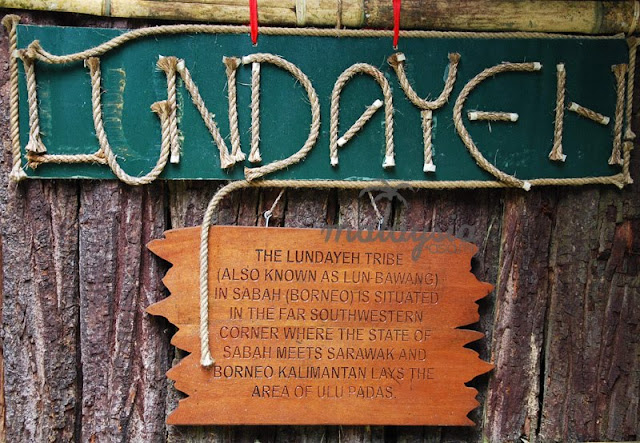 LUNDAYEH
THE LUNDAYEH TRIBE
(ALSO KNOWN AS LUN BAWANG)
IN SABAH (BORNEO) IS SITUATED
IN THE FAR SOUTHWESTERN
CORNER WHERE THE STATE OF
SABAH MEETS SARAWAK AND
BORNEO KALIMANTAN LAYS THE
AREA OF ULU PADAS.